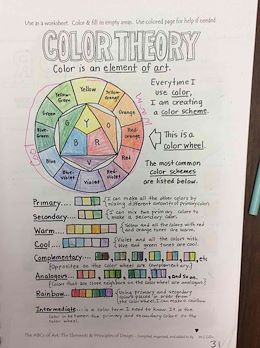 Use as a worksheet. Color & fill in empty areas. Use colored page for help if needed
COLOR THEORY
Color is an element of art.
Everytime I
use color,
I am creating
a color scheme.
This is a
color wheel.
The most common
color schemes
are listed below.
Yellow
Yellow-
orange
Orange
Red-
orange
Red
Red-
Violet
Violet
Blue-
violet
Blue
Blue-
Green
Green
Yellow-
Green
Y
O
R
V
B
G
Primary....
I can make all the other colors by
mixing different amounts of primary colors
Secondary....
I can mix two primary colors to
make a secondary color.
Warm....
Yellow and all the colors with red
and orange tones are warm.
Cool....
Violet and all the colors with
blue and green tones are cool.
Complementary....
, etc
(Opposites on the color wheel are complementary)
Analogous....
, and so on.
(Colors that are close neighbors on the color wheel are analogous)
Rainbow....
Using primary and secondary
colors placed in order from
the color wheel, I can make a rainbow
Intermediate... is a color term I need to know. It is the
color in between the primary and secondary colors on the
color wheel.
The ABCs of Art: The Elements & Principles of Design - Compiled, organized, and edited by
31